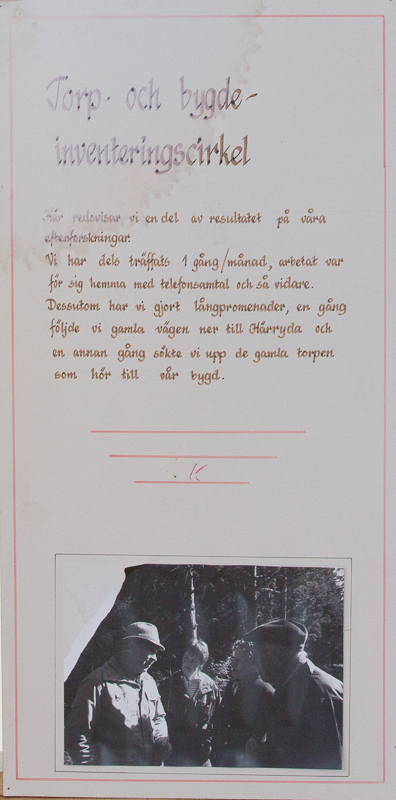 Torp- och bygde-
inventeringscirkel
Här redovisar vi en del av resultatet på våra
efterforskningar.
Vi har dels träffats 1 gång/månad, arbetat var
för sig hemma med telefonsamtal och så vidare.
Dessutom har vi gjort långpromenader, en gång
följde vi gamla vägen ner till Härryda och
en annan gång sökte vi upp de gamla torpen
som hör till vår bygd.
K